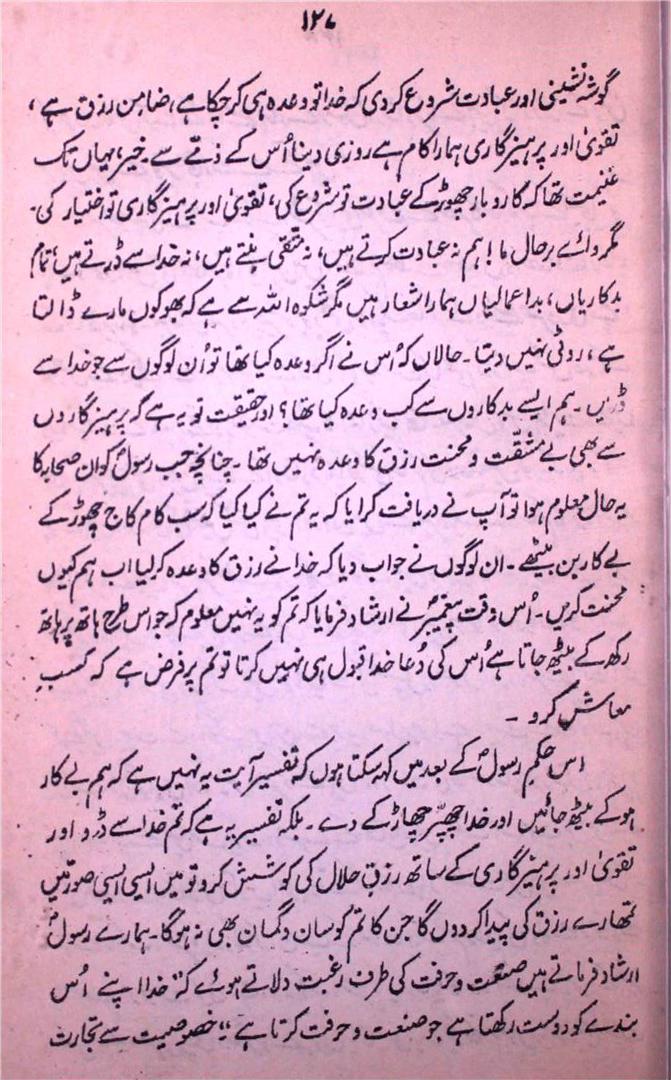 ۱۲۷
گوشہ نشینی اور عبادت شروع کر دی کہ خدا تو وعدہ ہی کر چکا ہے، ضامن رزق ہے،
تقویٰ اور پرہیزگاری ہمارا کام ہے روزی دینا اُس کے ذمّے ہے۔ خیر، یہاں تک
غنیمت تھا کہ کاروبار چھوڑ کے عبادت تو شروع کی، تقویٰ اور پرہیزگاری تو اختیار کی۔
مگر وائے برحال ما! ہم نہ عبادت کرتے ہیں، نہ متقی بنتے ہیں، نہ خدا سے ڈرتے ہیں، تمام
بدکاریاں، بداعمالیاں ہمارا شعار ہیں مگر شکوہ اللہ سے ہے کہ بھوکوں مارے ڈالتا
ہے، روٹی نہیں دیتا۔ حالاں کہ اُس نے اگر وعدہ کیا تھا تو اُن لوگوں سے جو خدا سے
ڈریں۔ ہم ایسے بدکاروں سے کب وعدہ کیا تھا؟ اور حقیقت تو یہ ہے کہ پرہیزگاروں
سے بھی بے مشقّت و محنت رزق کا وعدہ نہیں تھا۔ چنانچہ جب رسولؐ کو ان صحابہ کا
یہ حال معلوم ہوا تو آپ نے دریافت کرایا کہ یہ تم نے کیا کیا کہ سب کام کاج چھوڑ کے
بے کار بن بیٹھے۔ ان لوگوں نے جواب دیا کہ خدا نے رزق کا وعدہ کر لیا اب ہم کیوں
محنت کریں۔ اُس وقت پیغمبرؐ نے ارشاد فرمایا کہ تم کو یہ نہیں معلوم کہ جو اس طرح ہاتھ پر ہاتھ
رکھ کے بیٹھ جاتا ہے اُس کی دُعا خدا قبول ہی نہیں کرتا تو تم پر فرض ہے کہ کسبِ
معاش کرو ۔
اس حکمِ رسولؐ کے بعد میں کہہ سکتا ہوں کہ تفسیر آیت یہ نہیں ہے کہ ہم بے کار
ہو کے بیٹھ جائیں اور خدا چھپّر پھاڑ کے دے۔ بلکہ تفسیر یہ ہے کہ تم خدا سے ڈرو اور
تقویٰ اور پرہیزگاری کے ساتھ رزقِ حلال کی کوشش کرو تو میں ایسی ایسی صورتیں
تمھارے رزق کی پیدا کر دوں گا جن کا تم کو سان و گمان بھی نہ ہوگا۔ ہمارے رسولؐ
ارشاد فرماتے ہیں صنعت و حرفت کی طرف رغبت دلاتے ہوئے کہ "خدا اپنے اُس
بندے کو دوست رکھتا ہے جو صنعت و حرفت کرتا ہے"، خصوصیت سے تجارت